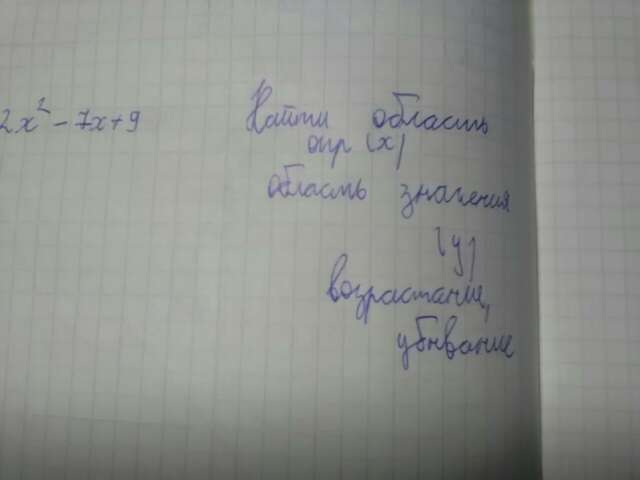 2x² - 7x + 9
Найти область
опр (x)
область значения
(y)
возрастание,
убывание